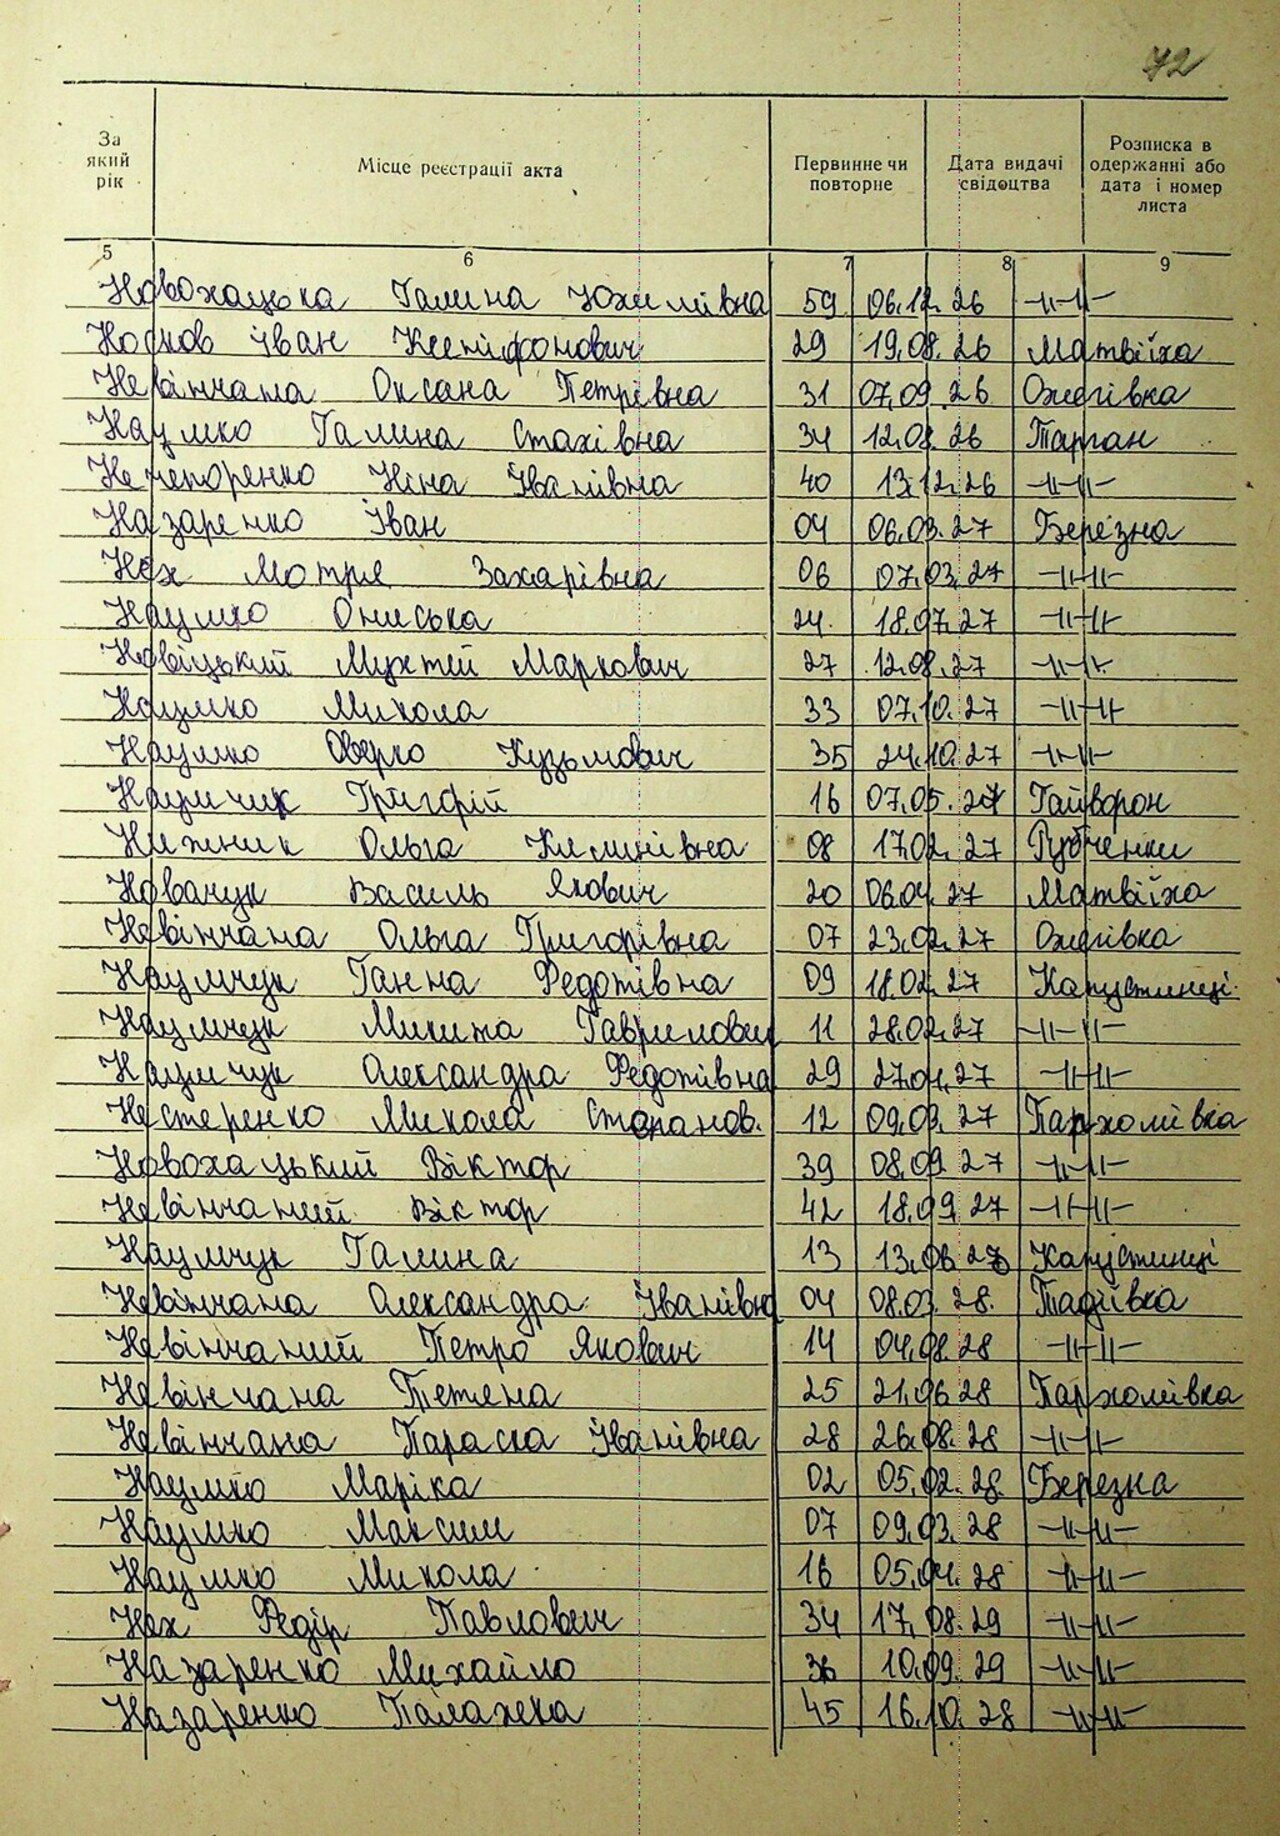 72
За який рік
Місце реєстрації акта
Первинне чи повторне
Дата видачі свідоцтва
Розписка в одержанні або дата і номер листа
5 6 7 8 9
Новохацька Галина Юхимівна 59 06.12.26 -//-//-
Носков Іван Ксенифонович 29 19.08.26 Матвіїха
Невінчана Оксана Петрівна 31 07.09.26 Ожегівка
Наумко Галина Стахівна 34 12.08.26 Тарган
Нечепоренко Ніна Іванівна 40 13.12.26 -//-//-
Назаренко Іван 04 06.03.27 Березна
Нех Мотря Захарівна 06 07.03.27 -//-//-
Наумко Ониська 24. 18.07.27 -//-//-
Новіцький Маркович 27 12.08.27 -//-//-
Наумко Микола 33 07.10.27 -//-//-
Наумко Оверко Кузьмович 35 24.10.27 -//-//-
Наумчук Григорій 16 07.05.27 Гайворон
Нижник Ольга Килинівна 08 17.02.27 Рубченки
Новачук Василь Якович 20 06.04.27 Матвіїха
Невінчана Ольга Григорівна 07 23.02.27 Ожегівка
Наумчук Ганна Федотівна 09 18.02.27 Капустинці.
Наумчук Микита Гаврилович 11 28.02.27 -//-//-
Наумчук Олександра Федотівна 29 27.04.27 -//-//-
Нестеренко Микола Степанов. 12 09.03.27 Пархомівка
Новохацький Віктор 39 08.09.27 -//-//-
Невінчаний Віктор 42 18.09.27 -//-//-
Наумчук Галина 13 13.06.28 Капустинці
Невінчана Олександра Іванівна 04 08.03.28. Тадіївка
Невінчаний Петро Якович 14 04.08.28 -//-//-
Невінчана Тетяна 25 21.06.28 Пархомівка
Невінчана Параска Іванівна 28 26.08.28 -//-//-
Наумко Маріка 02 05.02.28. Березна
Наумко Максим 07 09.03.28 -//-//-
Наумко Микола 16 05.04.28 -//-//-
Нех Федір Павлович 34 17.08.29 -//-//-
Назаренко Михайло 36 10.09.29 -//-//-
Назаренко Палажка 45 16.10.28 -//-//-